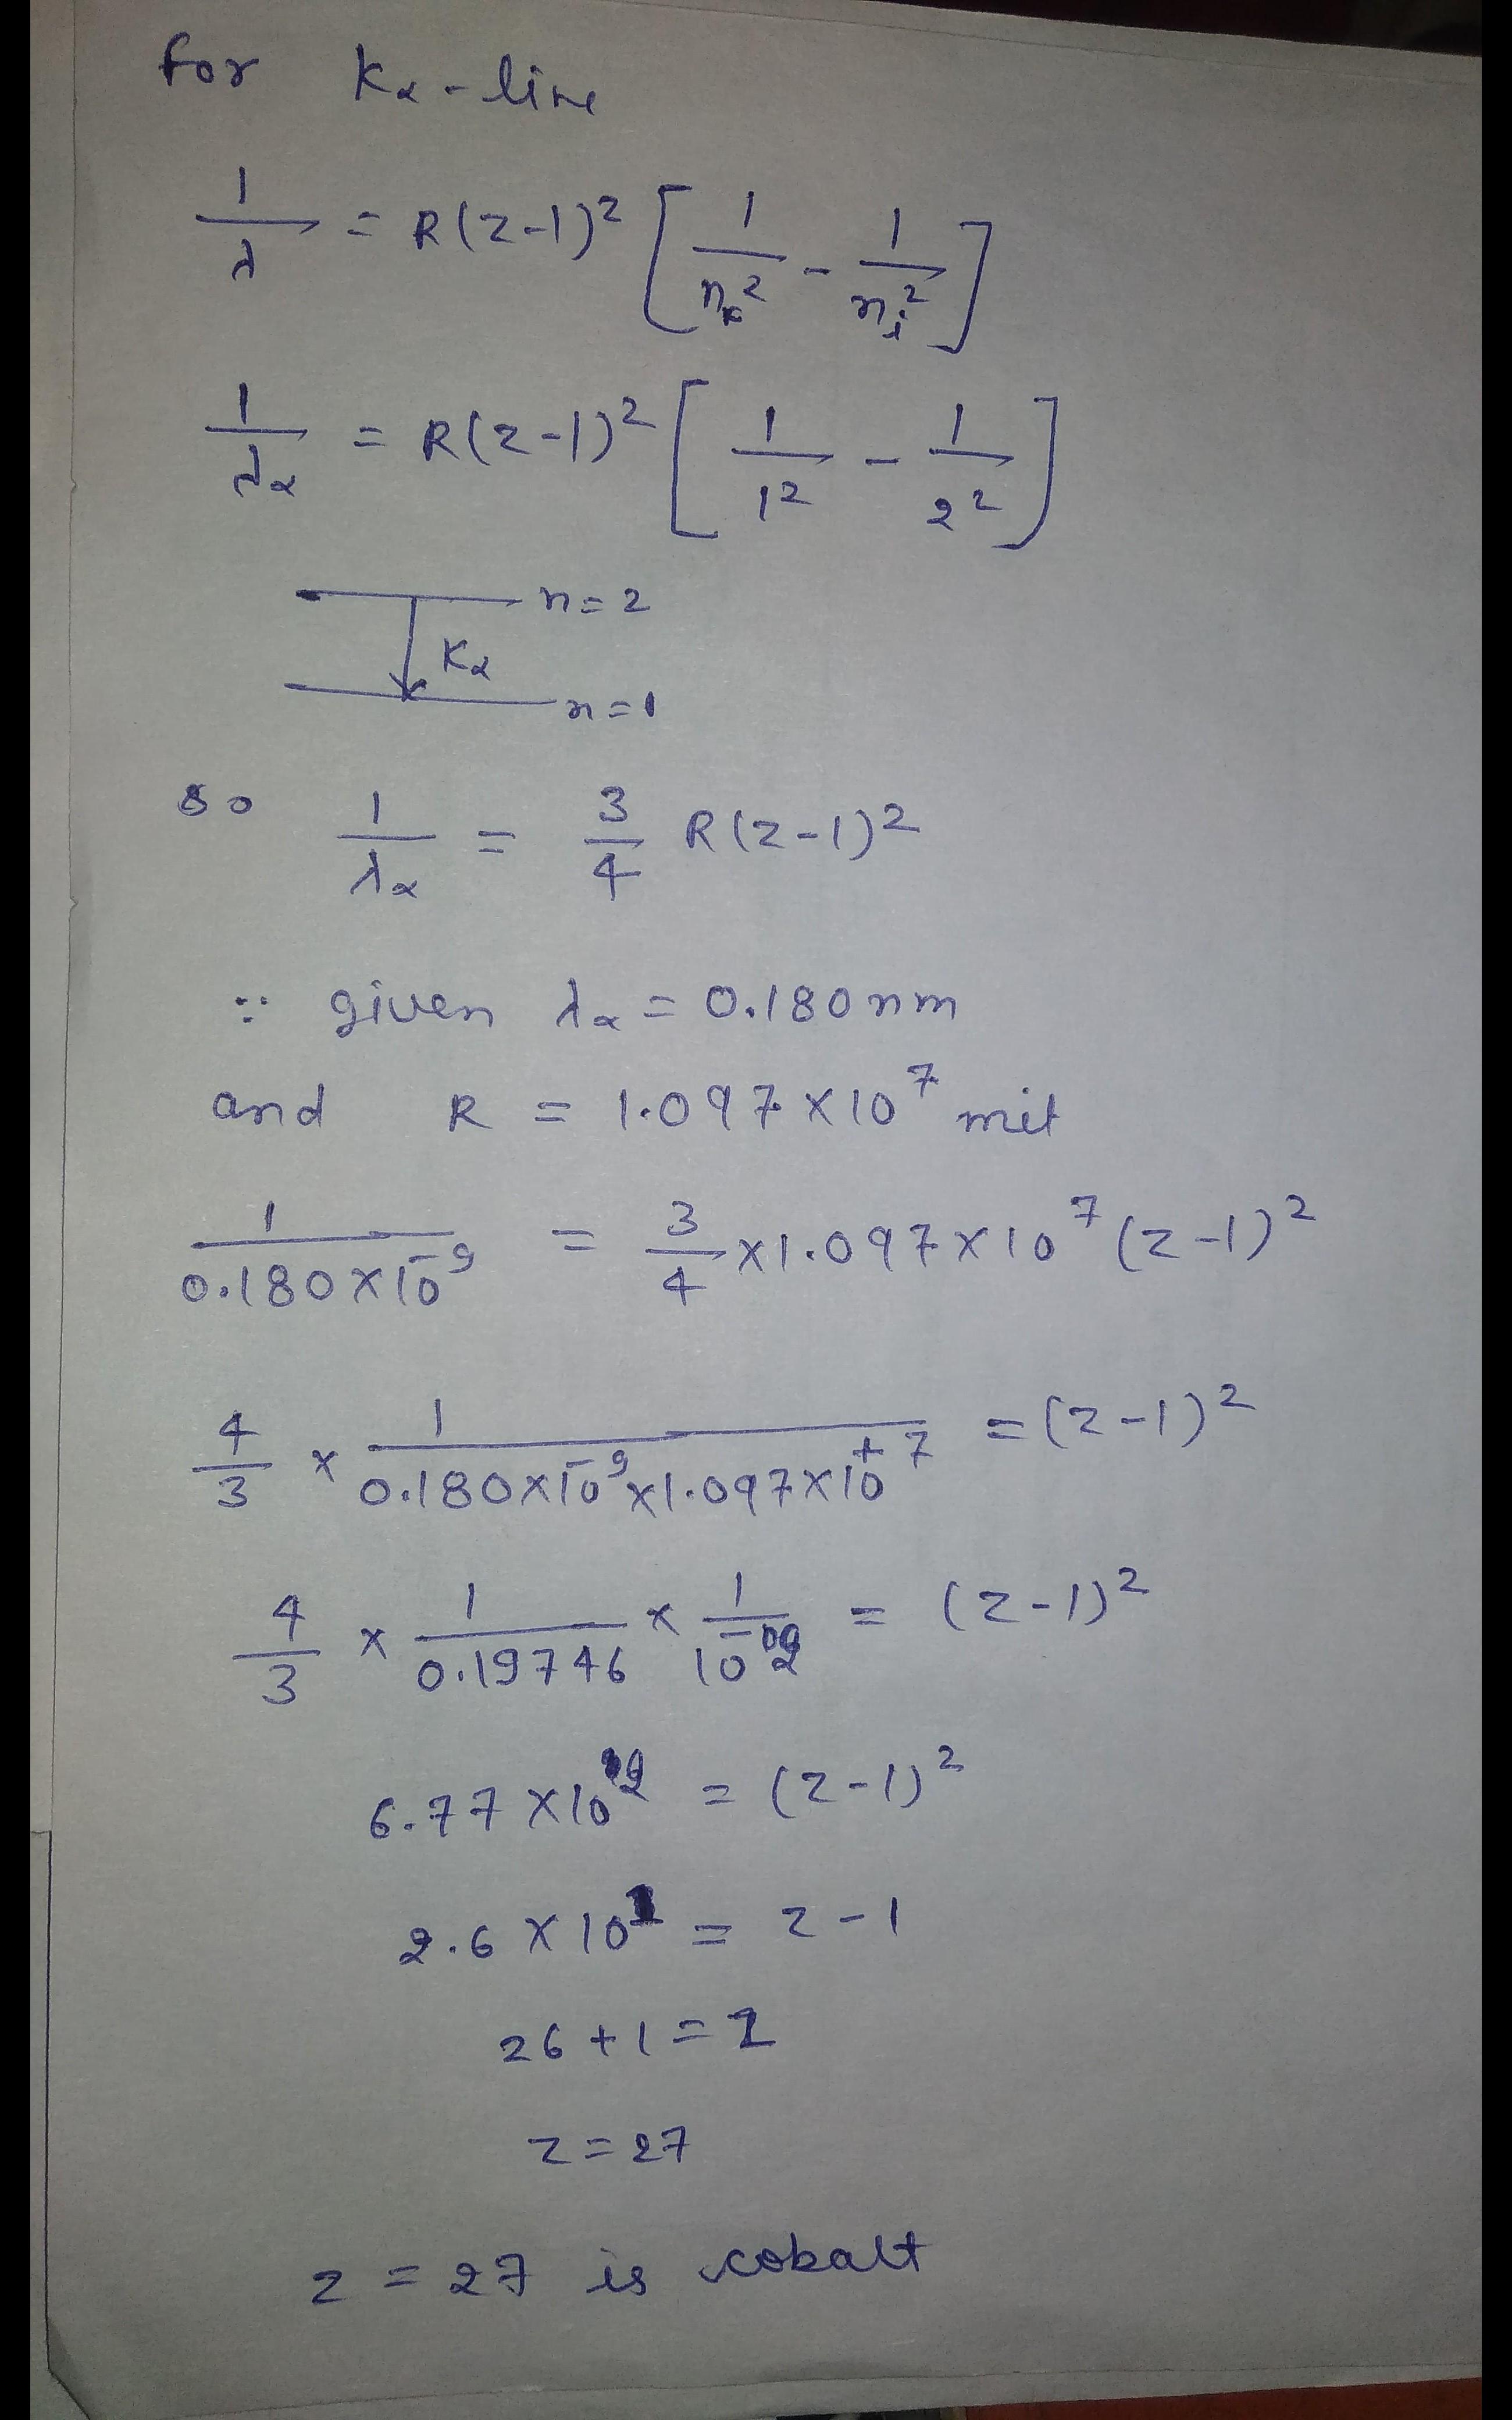 for Kα-line
1/λ = R(z-1)² [1/nₖ² - 1/nᵢ²]
1/λα = R(z-1)² [1/1² - 1/2²]
n=2
Kα
n=1
so 1/λα = 3/4 R(z-1)²
∵ given λα = 0.180 nm
and R = 1.097×10⁷ mit
1/(0.180×10⁻⁹) = 3/4 ×1.097×10⁷ (z-1)²
4/3 × 1/(0.180×10⁻⁹×1.097×10⁺⁷) = (z-1)²
4/3 × 1/0.19746 × 1/10⁻² = (z-1)²
6.77×10² = (z-1)²
2.6×10¹ = z-1
26+1=z
z=27
z=27 is cobalt